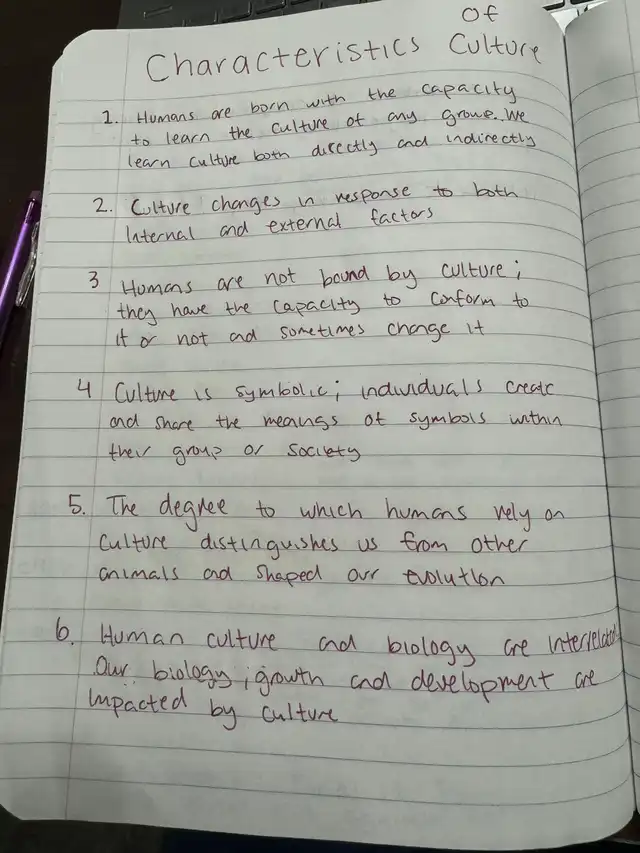 Characteristics Of Culture
1. Humans are born with the capacity
to learn the culture of any group. We
learn culture both directly and indirectly
2. Culture changes in response to both
internal and external factors
3 Humans are not bound by culture;
they have the capacity to conform to
it or not and sometimes change it
4 Culture is symbolic; individuals create
and share the meanings of symbols within
their group or society
5. The degree to which humans rely on
culture distinguishes us from other
animals and shaped our evolution
6. Human culture and biology are interrelated
Our biology, growth and development are
impacted by culture